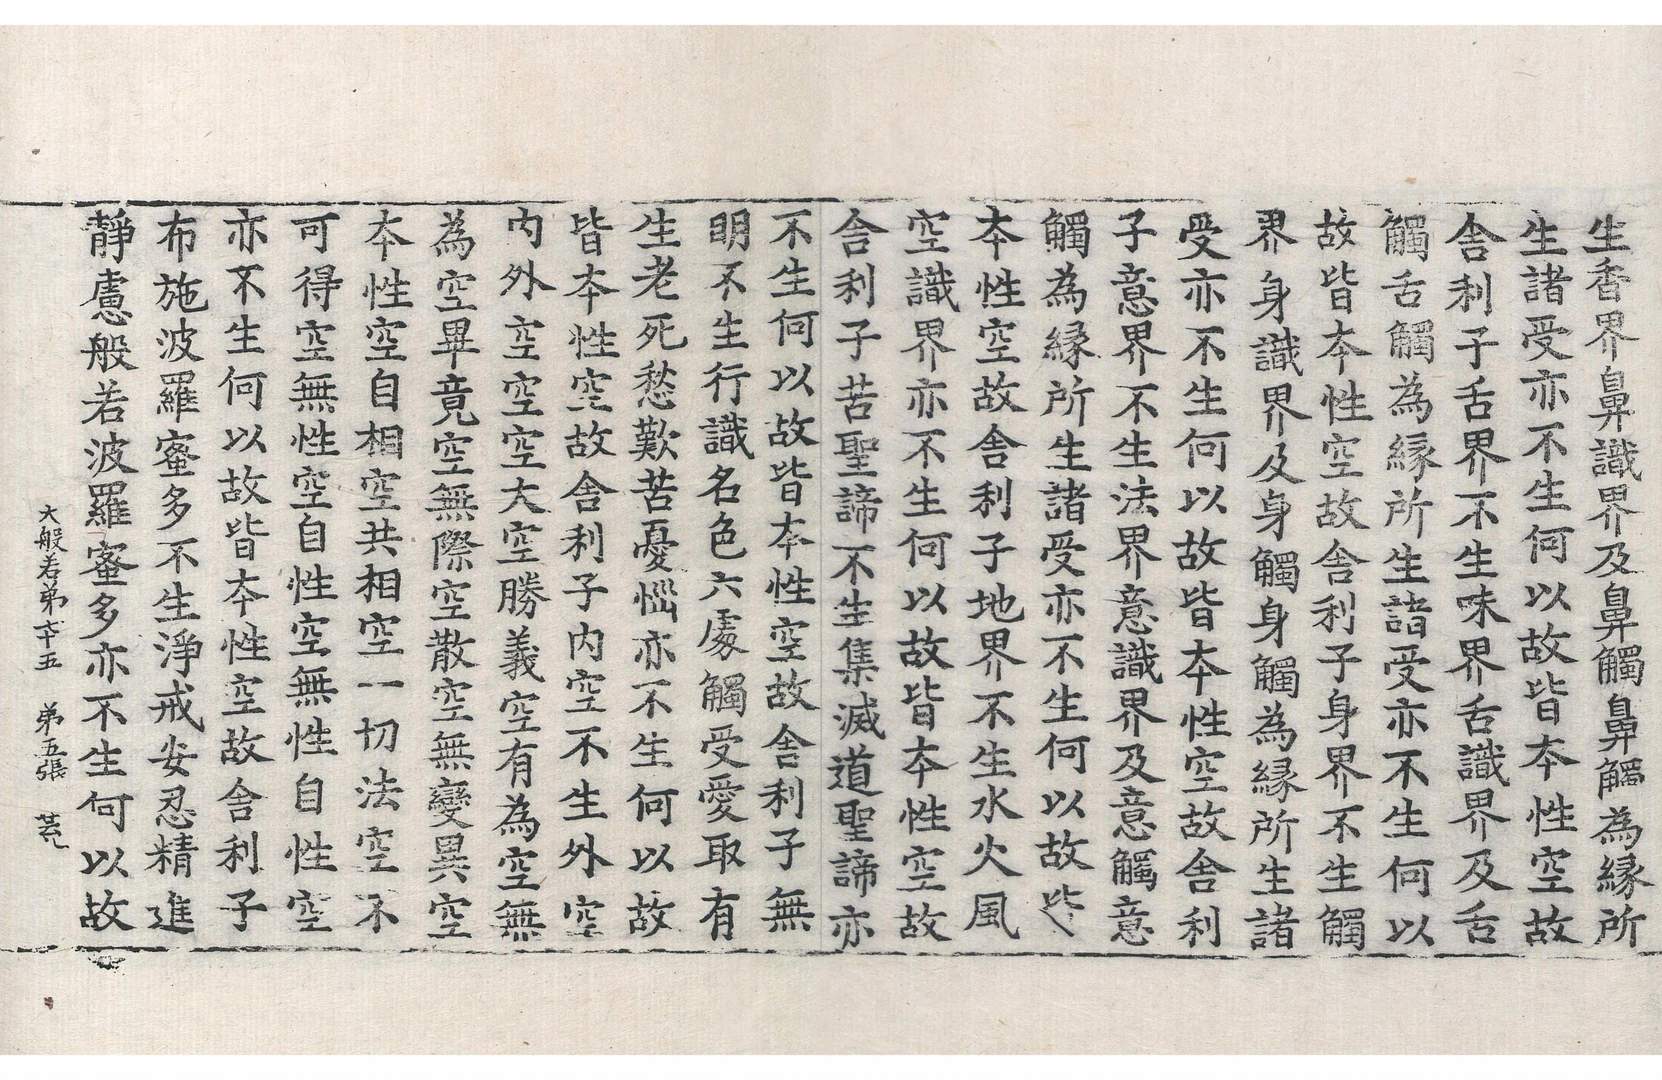 生香界鼻識界及鼻觸鼻觸為縁所
生諸受亦不生何以故皆本性空故
舍利子舌界不生味界舌識界及舌
觸舌觸為縁所生諸受亦不生何以
故皆本性空故舍利子身界不生觸
界身識界及身觸身觸為縁所生諸
受亦不生何以故皆本性空故舍利
子意界不生法界意識界及意觸意
觸為縁所生諸受亦不生何以故皆
本性空故舍利子地界不生水火風
空識界亦不生何以故皆本性空故
舍利子苦聖諦不生集滅道聖諦亦
不生何以故皆本性空故舍利子無
明不生行識名色六處觸受愛取有
生老死愁歎苦憂惱亦不生何以故
皆本性空故舍利子內空不生外空
內外空空空大空勝義空有為空無
為空畢竟空無際空散空無變異空
本性空自相空共相空一切法空不
可得空無性空自性空無性自性空
亦不生何以故皆本性空故舍利子
布施波羅蜜多不生淨戒安忍精進
靜慮般若波羅蜜多亦不生何以故
大般若弟六十五 弟五張